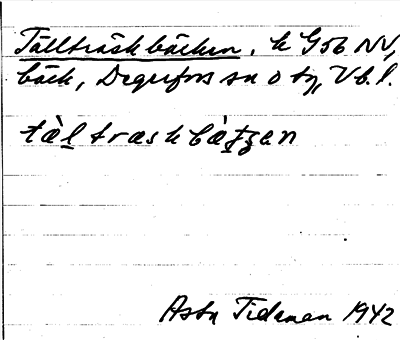 Tällträskbäcken, k G56 NV,
bäck, Degerfors sn o tg, Vb. l.
tàl traskbàtzen
Asta Tideman 1942